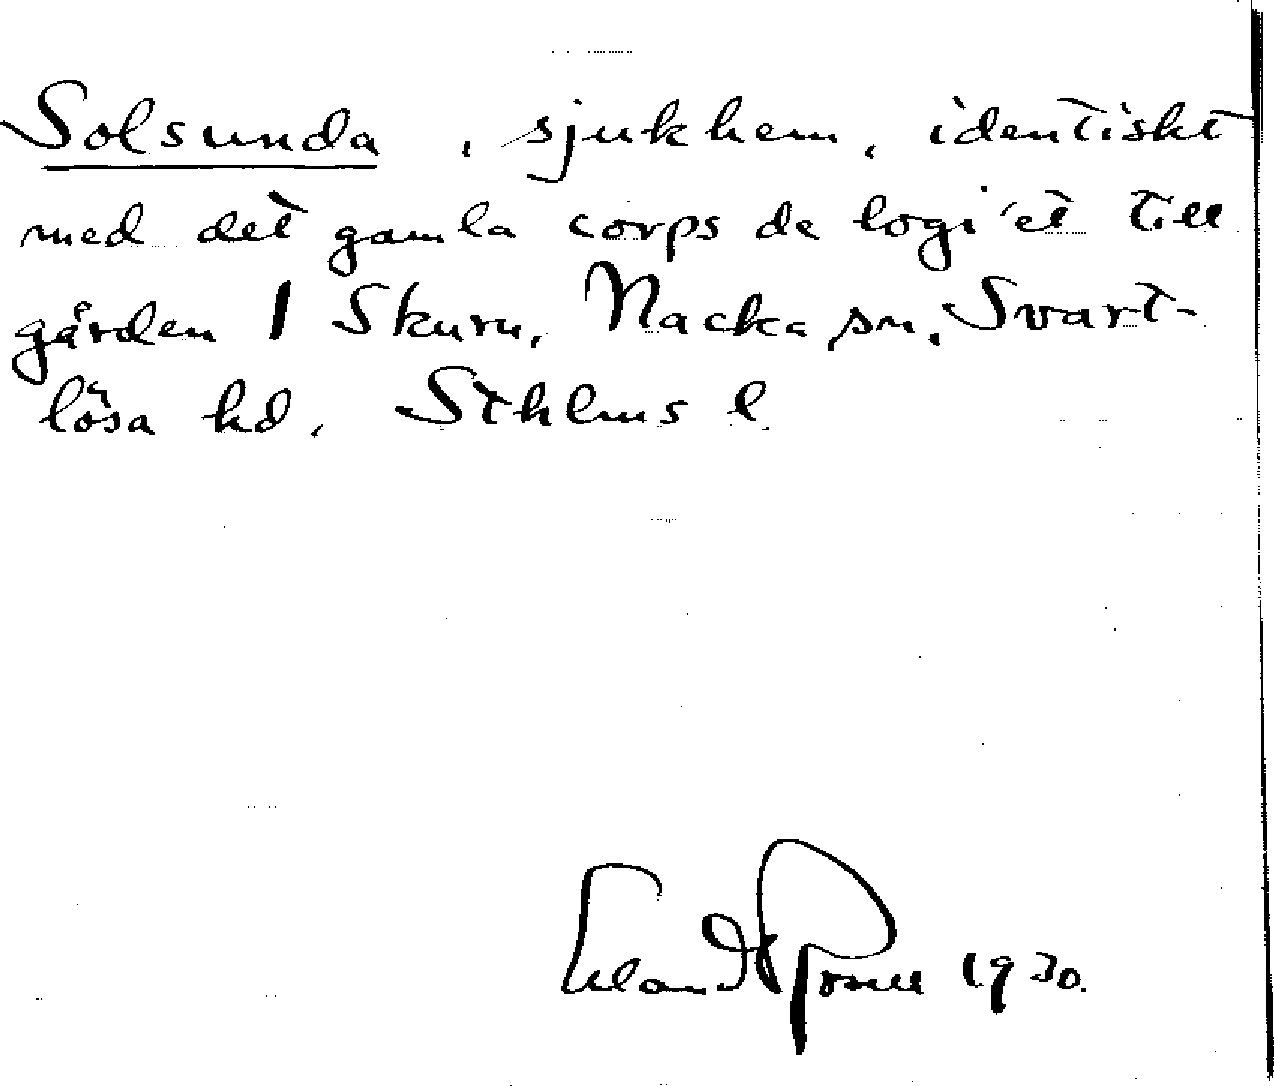 Solsunda, sjukhem, identiskt
med det gamla corps de logi'et till
gården Skuru, Nacka sn, Svart-
lösa hd, Sthlms l.
Erland Rosell 1930.